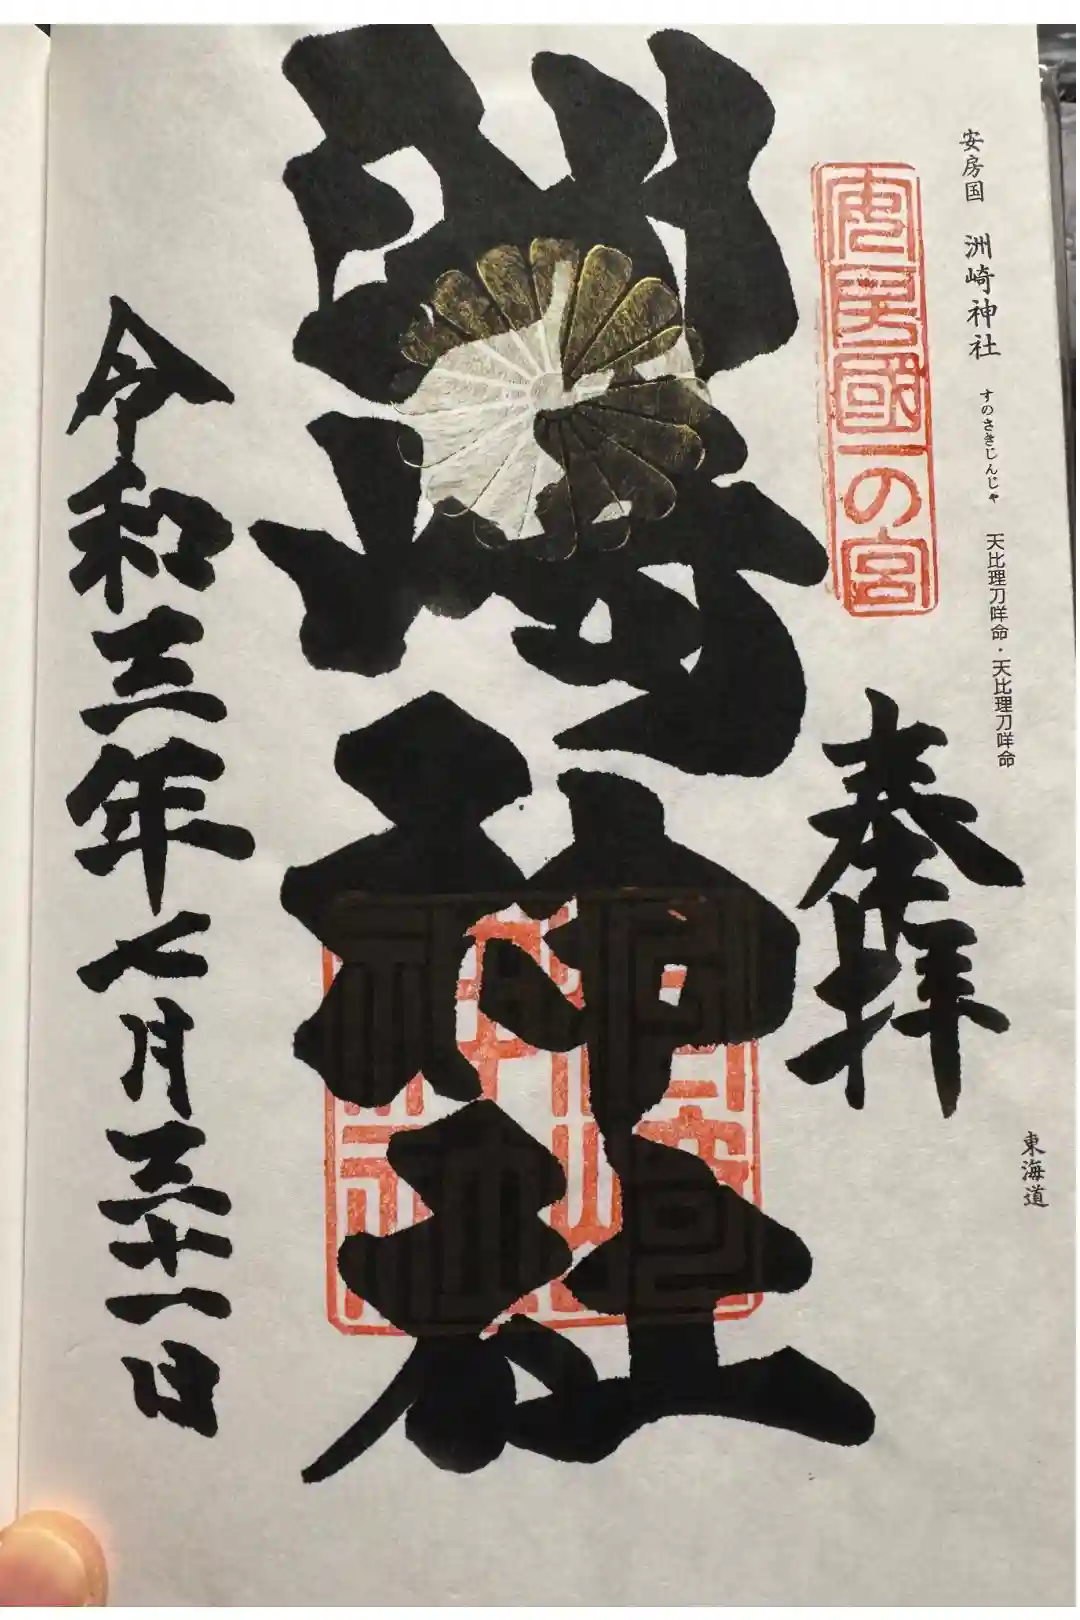 安房国 洲崎神社 すのさきじんじゃ 天比理刀咩命・天比理刀咩命
東海道
安房國一の宮
奉拝
洲崎神社
令和三年七月三十一日